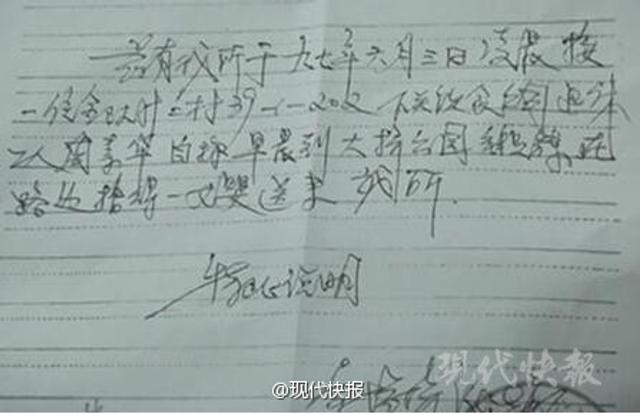 兹有我所于九七年六月三日凌晨接
一住金 村三村39-1-202 下关饮食公司退休
工人周美华自称早晨到大桥公园锻炼,在
路边捡得一女婴送来我所.
特此说明
现代快报
@现代快报